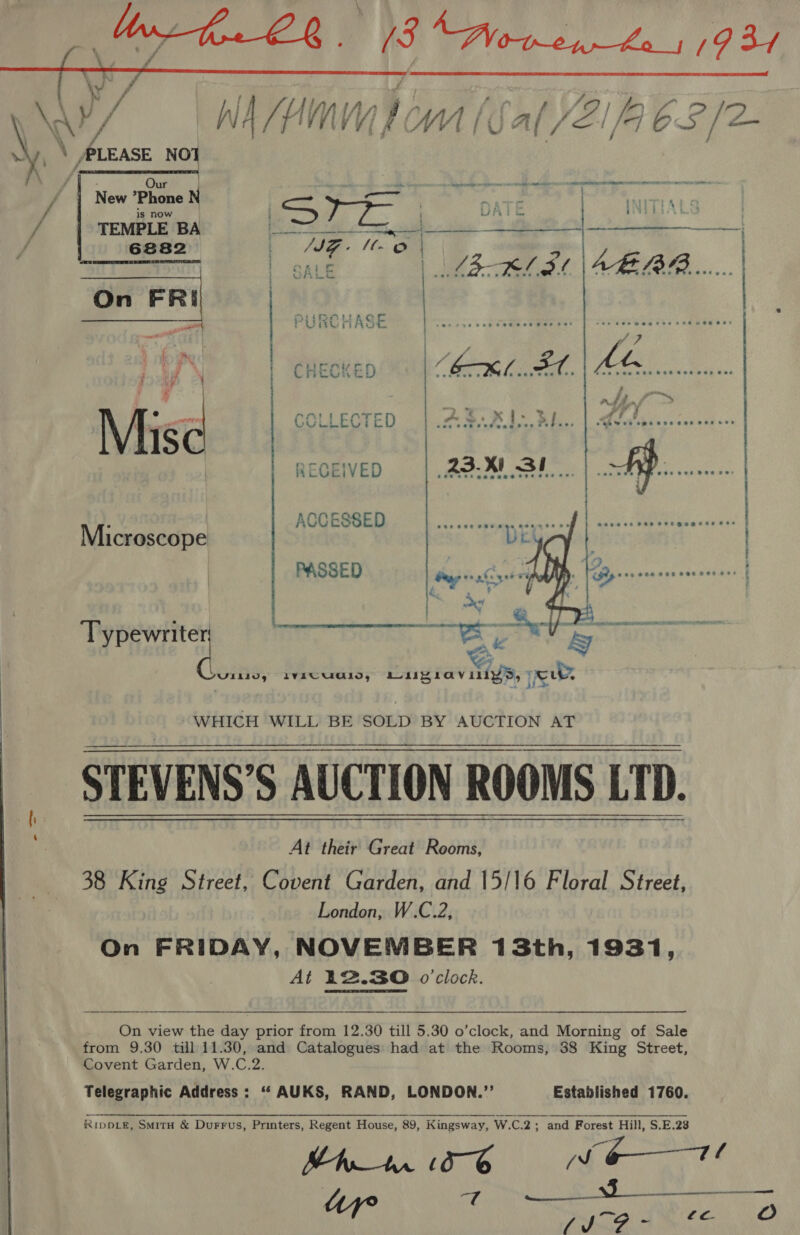 13th November 1931
WA/HMM/Com/Sal/21/A63/2
PLEASE NOT
Our
New 'Phone N
is now
TEMPLE BA
6882
On FRI
STE DATE INITIALS
SALE 13-XI 31
PURCHASE
CHECKED
COLLECTED 23.XI.31
RECEIVED 23.XI 31
ACCESSED
PASSED
Misc
Microscope
Typewriter
WHICH WILL BE SOLD BY AUCTION AT
STEVENS'S AUCTION ROOMS LTD.
At their Great Rooms,
38 King Street, Covent Garden, and 15/16 Floral Street,
London, W.C.2,
On FRIDAY, NOVEMBER 13th, 1931,
At 12.30 o'clock.
On view the day prior from 12.30 till 5.30 o'clock, and Morning of Sale
from 9.30 till 11.30, and Catalogues had at the Rooms, 38 King Street,
Covent Garden, W.C.2.
Telegraphic Address : “ AUKS, RAND, LONDON.” Established 1760.
RIDDLE, SMITH & DUFFUS, Printers, Regent House, 89, Kingsway, W.C.2 ; and Forest Hill, S.E.23